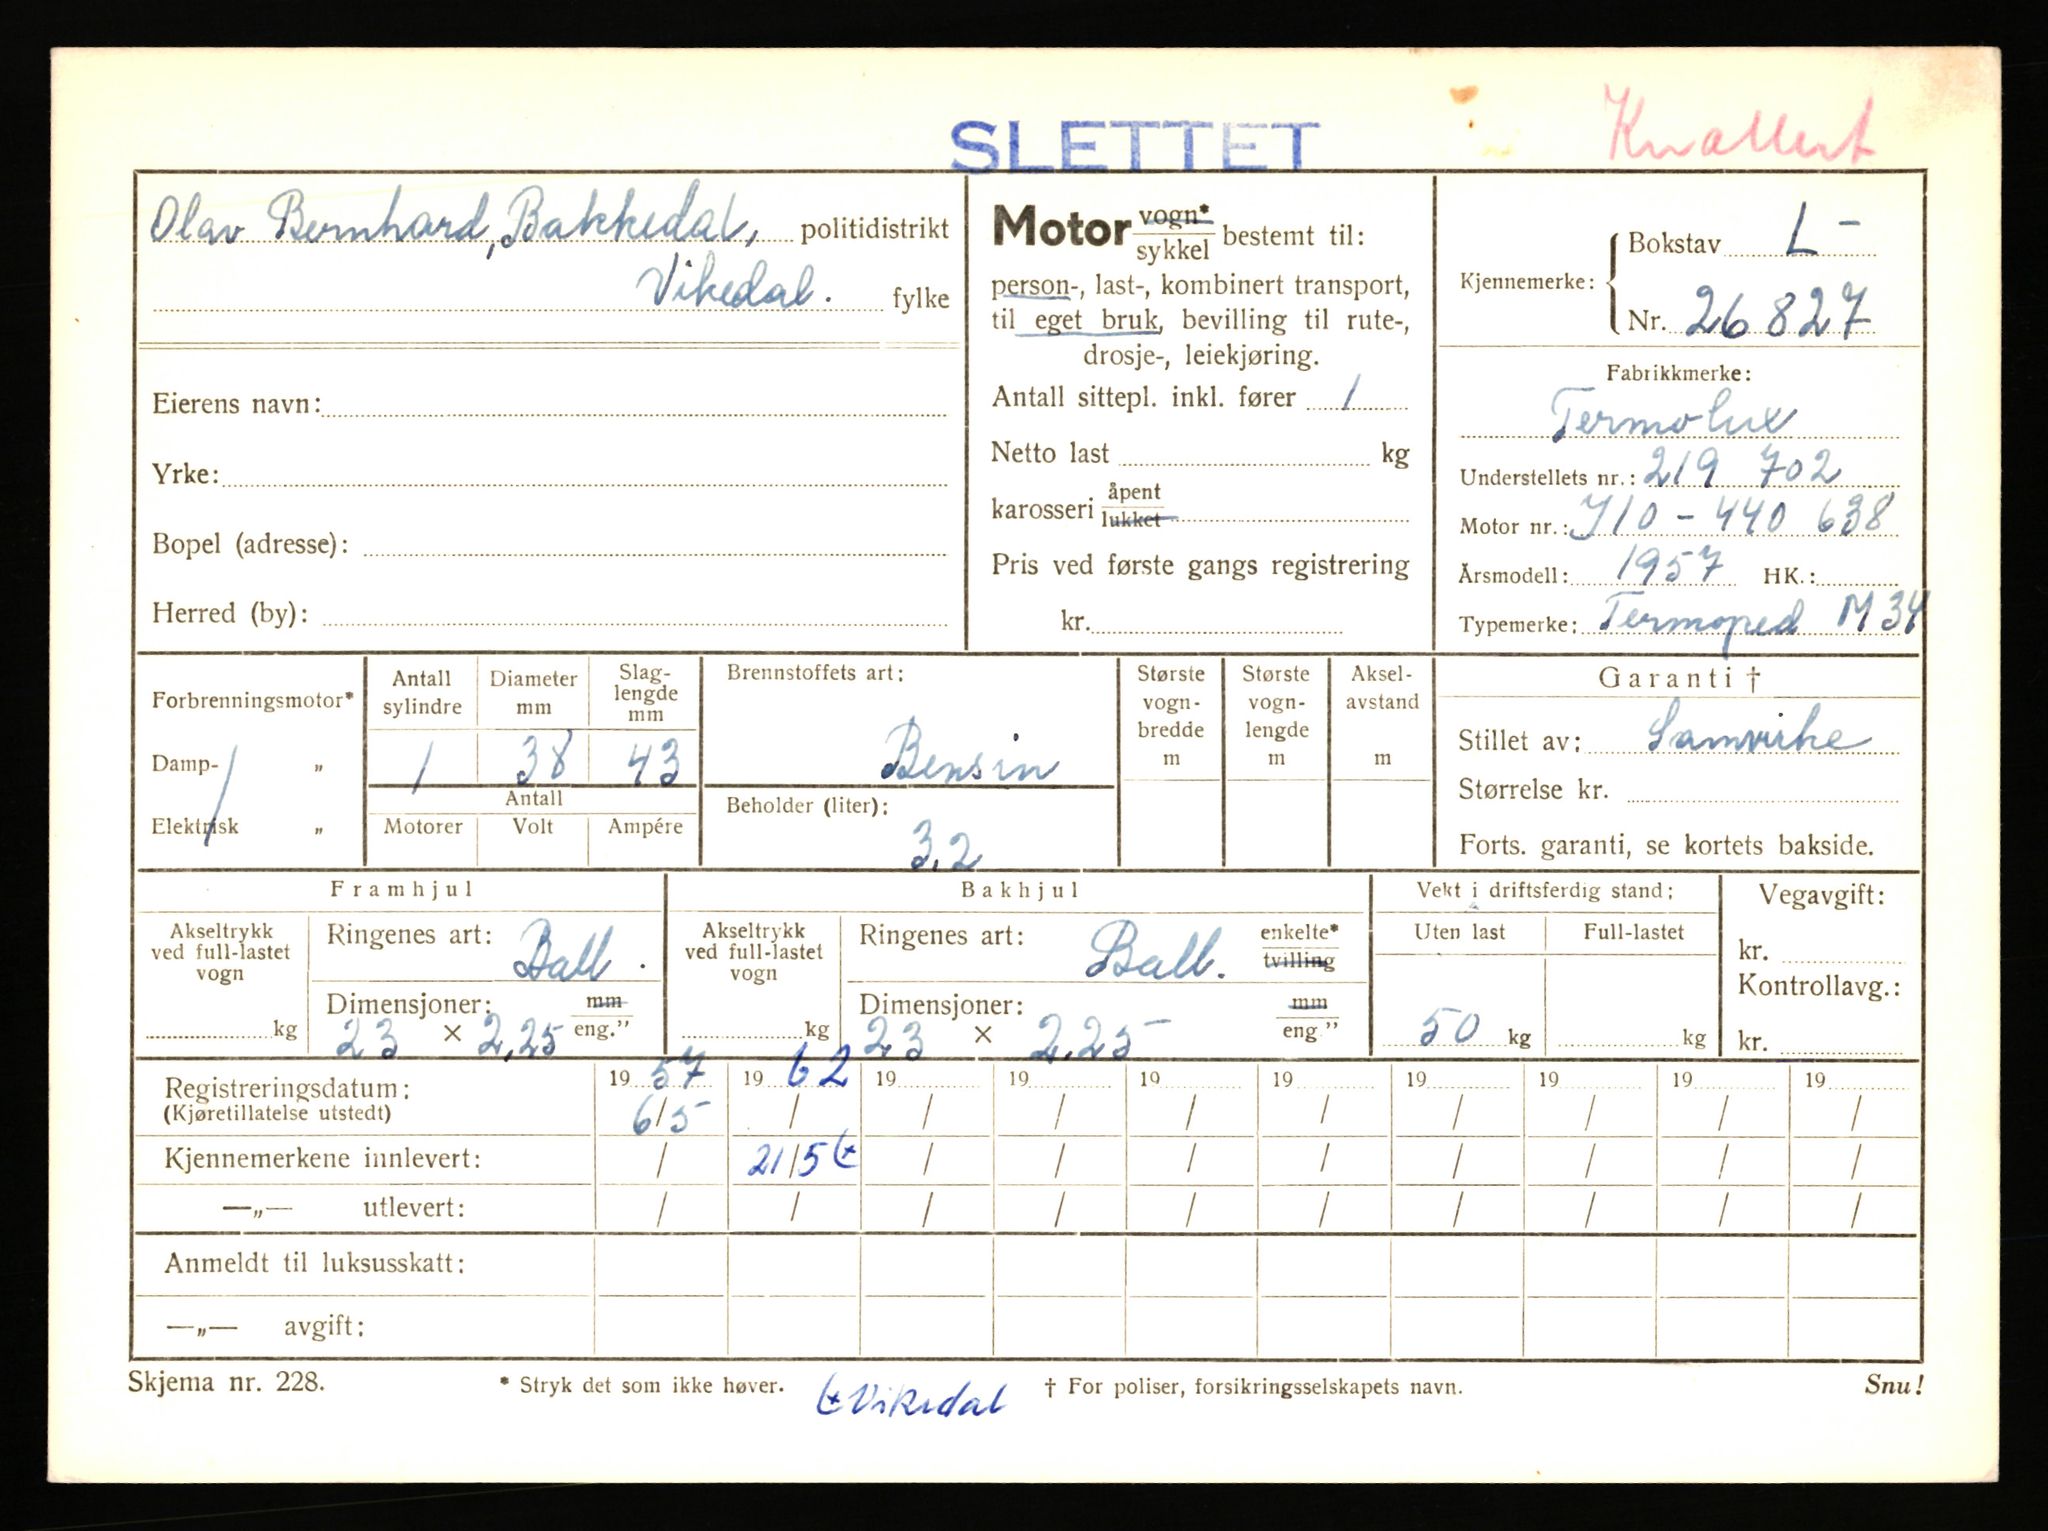 SLETTET
Knallert
Olav Bernhard, Bakkedal, politidistrikt
Vikedal. fylke
Eierens navn:
Yrke:
Bopel (adresse):
Herred (by):
Motor vogn* / sykkel bestemt til:
person-, last-, kombinert transport,
til eget bruk, bevilling til rute-,
drosje-, leiekjøring.
Antall sittepl. inkl. fører 1
Netto last kg
karosseri åpent / lukket
Pris ved første gangs registrering
kr.
Kjennemerke: Bokstav L-
Nr. 26827
Fabrikkmerke:
Termolux
Understellets nr.: 219 702
Motor nr.: J10 - 440 638
Årsmodell: 1957 HK.:
Typemerke: Termoped M 34
Forbrenningsmotor*
Damp- „
Elektrisk „
Antall sylindre
1
Diameter mm
38
Slag-lengde mm
43
Antall
Motorer Volt Ampére
Brennstoffets art:
Bensin
Beholder (liter):
3,2
Største vogn-bredde m
Største vogn-lengde m
Aksel-avstand m
Garanti †
Stillet av: Samvirke
Størrelse kr.
Forts. garanti, se kortets bakside.
Framhjul
Akseltrykk ved full-lastet vogn
kg
Ringenes art: Ball.
Dimensjoner: mm
23 × 2,25 eng."
Bakhjul
Akseltrykk ved full-lastet vogn
kg
Ringenes art: Ball. enkelte* / tvilling
Dimensjoner: mm
23 × 2,25 eng."
Vekt i driftsferdig stand:
Uten last Full-lastet
50 kg kg
Vegavgift:
kr.
Kontrollavg.:
kr.
Registreringsdatum: 1957 1962 19 19 19 19 19 19 19 19
(Kjøretillatelse utstedt) 6/5 / / / / / / / / /
Kjennemerkene innlevert: / 21/5 (* / / / / / / / /
—„— utlevert: / / / / / / / / / /
Anmeldt til luksusskatt:
—„— avgift:
Skjema nr. 228. * Stryk det som ikke høver. † For poliser, forsikringsselskapets navn. Snu!
(* Vikedal